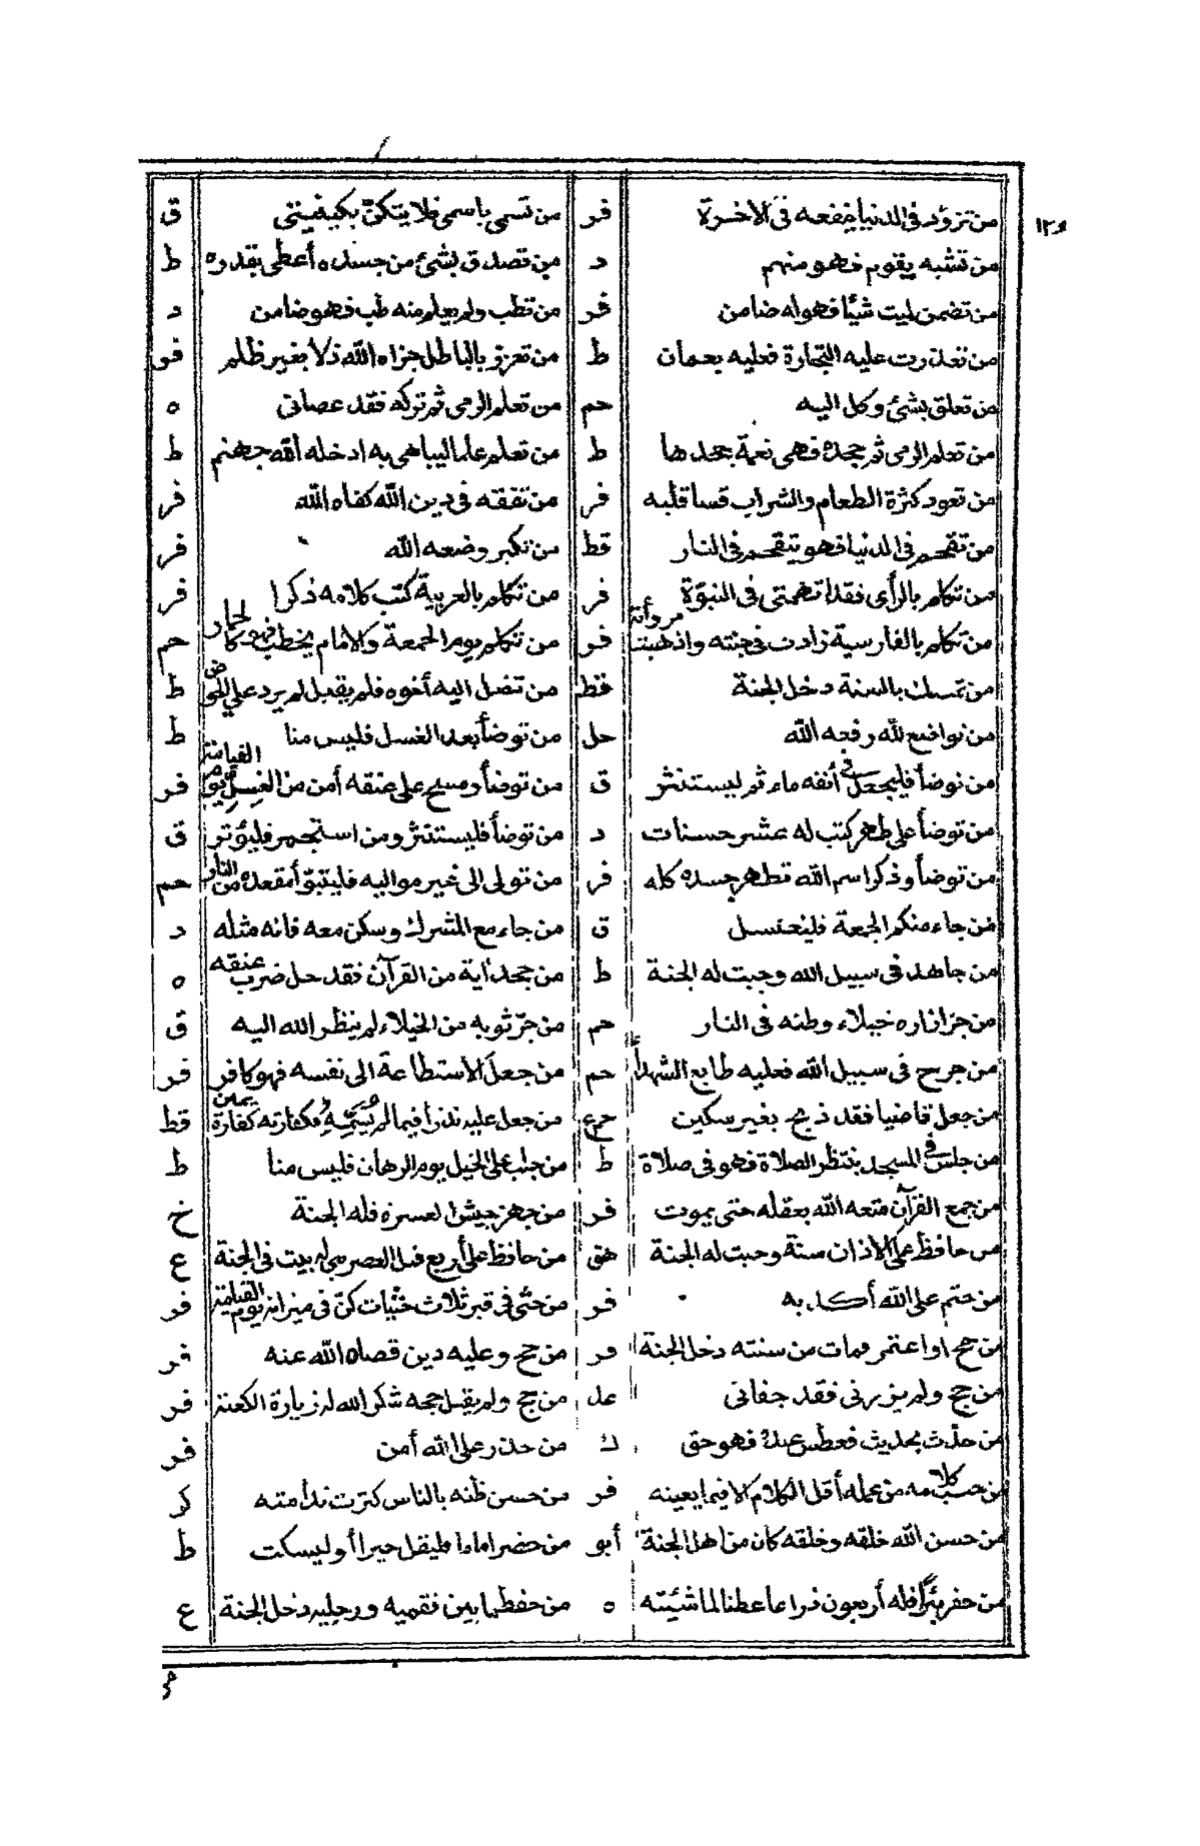 ١٢٥
من تزوّد في الدنيا ينفعه في الآخرة فر من تسمى باسمي فلا يتكنّ بكنيتي ق
من تشبه بقوم فهو منهم د من تصدق بشئ من جسده أعطى بقدره ط
من تضمن لميت شيئا فهو له ضامن فر من تطبب ولم يعلم منه طب فهو ضامن د
من تعذرت عليه التجارة فعليه بعمان ط من تعزز بالباطل جزاه الله ذلا بغير ظلم فر
من تعلق بشئ وكل اليه حم من تعلم الرمى ثم تركه فقد عصانى ه
من تعلم الرمى ثم جحده فهى نعمة جحدها ط من تعلم علما ليباهى به ادخله الله جهنم ط
من تعود كثرة الطعام والشراب قسا قلبه فر من تفقه في دين الله كفاه الله فر
من تقحم في الدنيا فهو يتقحم في النار قط من تكبر وضعه الله فر
من تكلم بالرأى فقد اتهمنى في النبوّة فر من تكلم بالعربية كتب كلامه ذكرا فر
من تكلم بالفارسية زادت في خبثه واذهبت مروأته فر من تكلم يوم الجمعة والامام يخطب فهو كالحمار حم
من تمسك بالسنة دخل الجنة قط من تنصل اليه أخوه فلم يقبل لم يرد علي الحوض ط
من تواضع لله رفعه الله حل من توضأ بعد الغسل فليس منا ط
من توضأ فليجعل في أنفه ماء ثم ليستنثر ق من توضأ ومسح على عنقه أمن من الغل يوم القيامة فر
من توضأ على طهر كتب له عشر حسنات د من توضأ فليستنثر ومن استجمر فليؤتر ق
من توضأ وذكر اسم الله تطهر جسده كله فر من تولى الى غير مواليه فليتبوّأ مقعده من النار حم
من جاء منكم الجمعة فليغتسل ق من جاء مع المشرك وسكن معه فانه مثله د
من جاهد في سبيل الله وجبت له الجنة ط من جحد آية من القرآن فقد حل ضرب عنقه ه
من جرّ ازاره خيلاء وطئه في النار حم من جرّ ثوبه من الخيلاء لم ينظر الله اليه ق
من جرح في سبيل الله فعليه طابع الشهدأ حم من جعل الاستطاعة الى نفسه فهو كافر فر
من جعل قاضيا فقد ذبح بغير سكين من جعل عليه نذرا فيما لم يسمّه فكفارته كفارة يمين قط
من جلس في المسجد ينتظر الصلاة فهو في صلاة ط من جلب على الخيل يوم الرهان فليس منا ط
من جمع القرآن متعه الله بعقله حتى يموت فر من جهز جيش العسرة فله الجنة خ
من حافظ على الاذان سنة وجبت له الجنة هق من حافظ على أربع قبل العصر بنى له بيت في الجنة ع
من حتم على الله أكذبه فر من حثى في قبر ثلاث حثيات كنّ في ميزانه يوم القيامة فر
من حج او اعتمر فمات من سنته دخل الجنة فر من حج وعليه دين قضاه الله عنه فر
من حج ولم يزرنى فقد جفانى عد من حج ولم يقبل حجه شكر الله له زيارة الكعبة فر
من حدّث بحديث فعطس عنده فهو حق ك من حذر على الله أمن فر
من حسب كلامه من عمله أقل الكلام الا فيما يعينه فر من حسن ظنه بالناس كثرت ندامته كر
من حسن الله خلقه وخلقه كان من اهل الجنة أبو من حضر اماما فليقل خيرا أو ليسكت ط
من حفر بئرا فله أربعون ذراعا عطنا لماشيته ه من حفظ ما بين فقميه ورجليه دخل الجنة ع